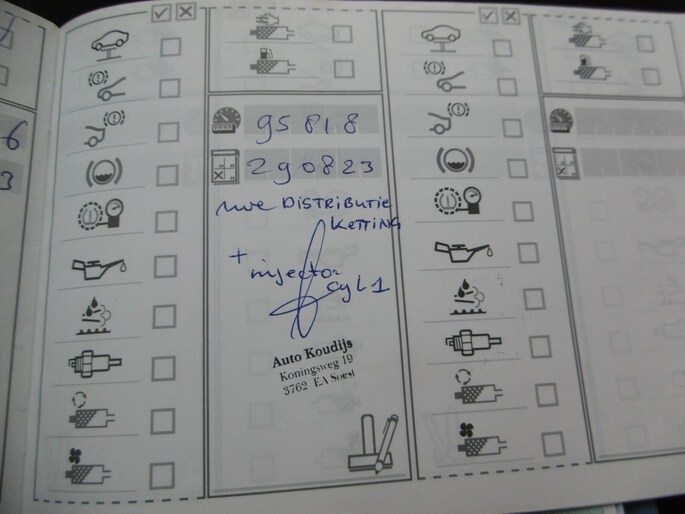 95818
290823
nwe DISTRIBUTIE
KETTING
+ injector
cyl 1
Auto Koudijs
Koningsweg 19
3762 EA Soest
6
3